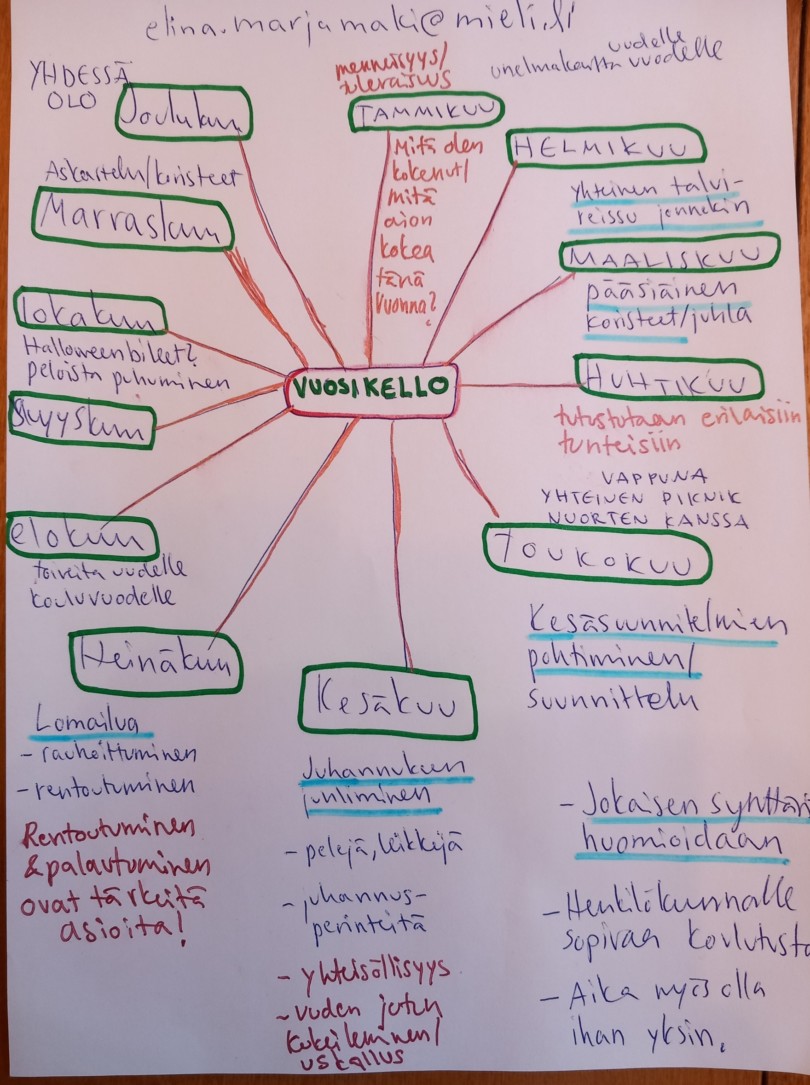 elina.marjamaki@mieli.fi
YHDESSÄ
OLO
Joulukuu
menneisyys/
tulevaisuus
TAMMIKUU
Mitä olen
kokenut/
mitä
aion
kokea
tänä
vuonna?
unelmakartta uudelle
vuodelle
HELMIKUU
Yhteinen talvi-
reissu jonnekin
MAALISKUU
pääsiäinen
koristeet/juhla
HUHTIKUU
tutustutaan erilaisiin
tunteisiin
VAPPUNA
YHTEINEN PIKNIK
NUORTEN KANSSA
TOUKOKUU
Kesäsuunnitelmien
pohtiminen/
suunnittelu
Askartelu/koristeet
Marraskuu
lokakuu
Halloweenbileet?
peloista puhuminen
Syyskuu
VUOSIKELLO
elokuu
toiveita uudelle
kouluvuodelle
Heinäkuu
Lomailua
- rauhoittuminen
- rentoutuminen
Rentoutuminen
& palautuminen
ovat tärkeitä
asioita!
Kesäkuu
Juhannuksen
juhliminen
- pelejä, leikkejä
- juhannus-
perinteitä
- yhteisöllisyys
- uuden jutun
kokeileminen/
uskallus
- Jokaisen synttäri
huomioidaan
- Henkilökunnalle
sopivaa koulutusta
- Aika myös olla
ihan yksin.